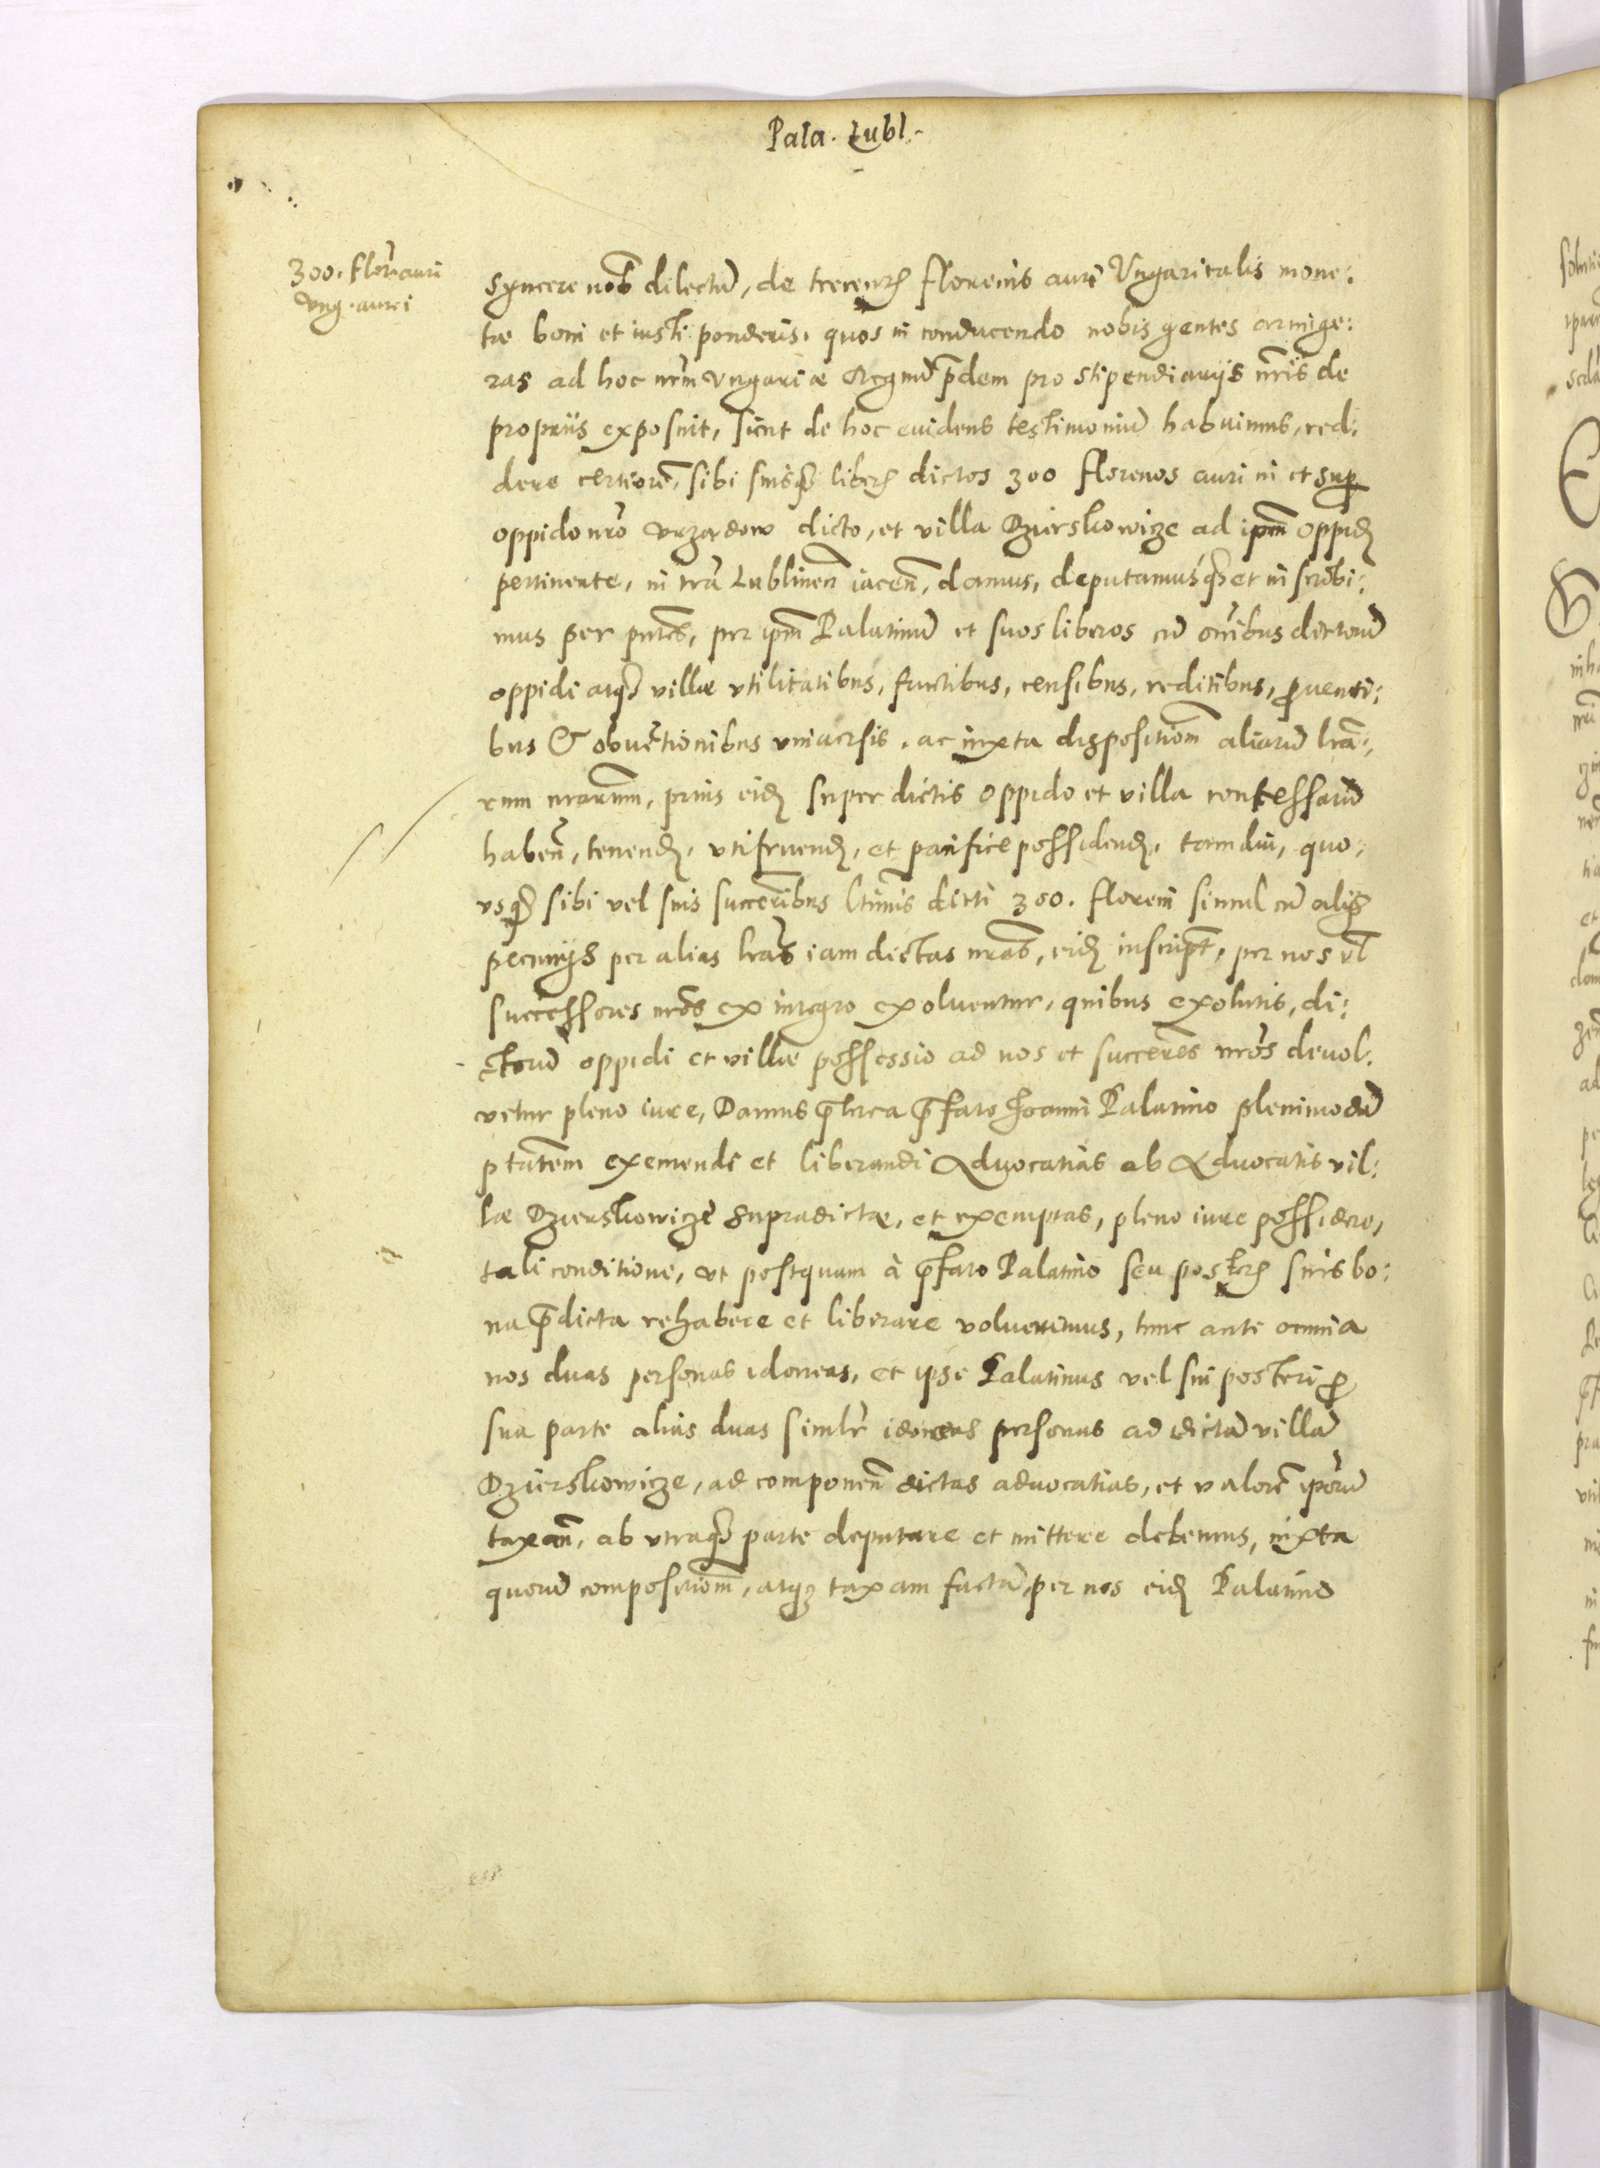 Pala. Lubl.
300. flor. auri
Ung. aurei
syncere nob dilectu, de trecent florenis auri Ungaricalis mone:
tæ boni et iusti ponderis, quos in conducendo nobis gentes armige:
ras ad hoc nrm Vngariæ Regnu pdem pro stipendiarijs nris de
proprijs exposuit, sicut de hoc euidens testimoniu habuimus, red:
dere certiore, sibi suisq liberis dictos 300 florenos auri in et sup
oppido nro Vrzędow dicto, et villa Dzierskowicze ad ipm oppid
pertinente, in tra Lublinen iacen, damus, deputamusq et inscribi:
mus per pntes, per ipm Palatinu et suos liberos cu omibus dictoru
oppidi atq villæ vtilitatibus, fructibus, censibus, reditibus, prouenti:
bus & obuetionibus vniuersis, ac iuxta dispositiom aliaru lra:
rum nrarum, prius eid super dictis oppido et villa confessaru
haben, tenend, vtifruend, et pacifice possidend, tamdiu, quo:
vsq sibi vel suis succeribus ltimis dicti 300. floreni simul cu alijs
pecunijs per alias lras iam dictas nras, eid inscript, per nos vl
successores nros ex integro exoluentur, quibus exolutis, di:
ctoru oppidi et villæ possessio ad nos et succeres nros deuol:
vetur pleno iure, Damus pterea pfato Joanni Palatino plenimodu
ptatem exemendi et liberandi Aduocatias ab Aduocatis vil:
læ Dzierskowicze supradictæ, et exemptas, pleno iure possidere,
tali conditione, vt postquam à pfato Palatino seu posteris suis bo:
na pdicta rehabere et liberare voluerimus, tunc ante omnia
nos duas personas idoneas, et ipse Palatinus vel sui posteri pro
sua parte alias duas similr idoneas personas ad dicta villa
Dzierskowicze, ad componen dictas aduocatias, et valore iparu
taxan, ab vtraq parte deputare et mittere debemus, iuxta
quoru compositiom, atq taxam facta, per nos eid Palatino